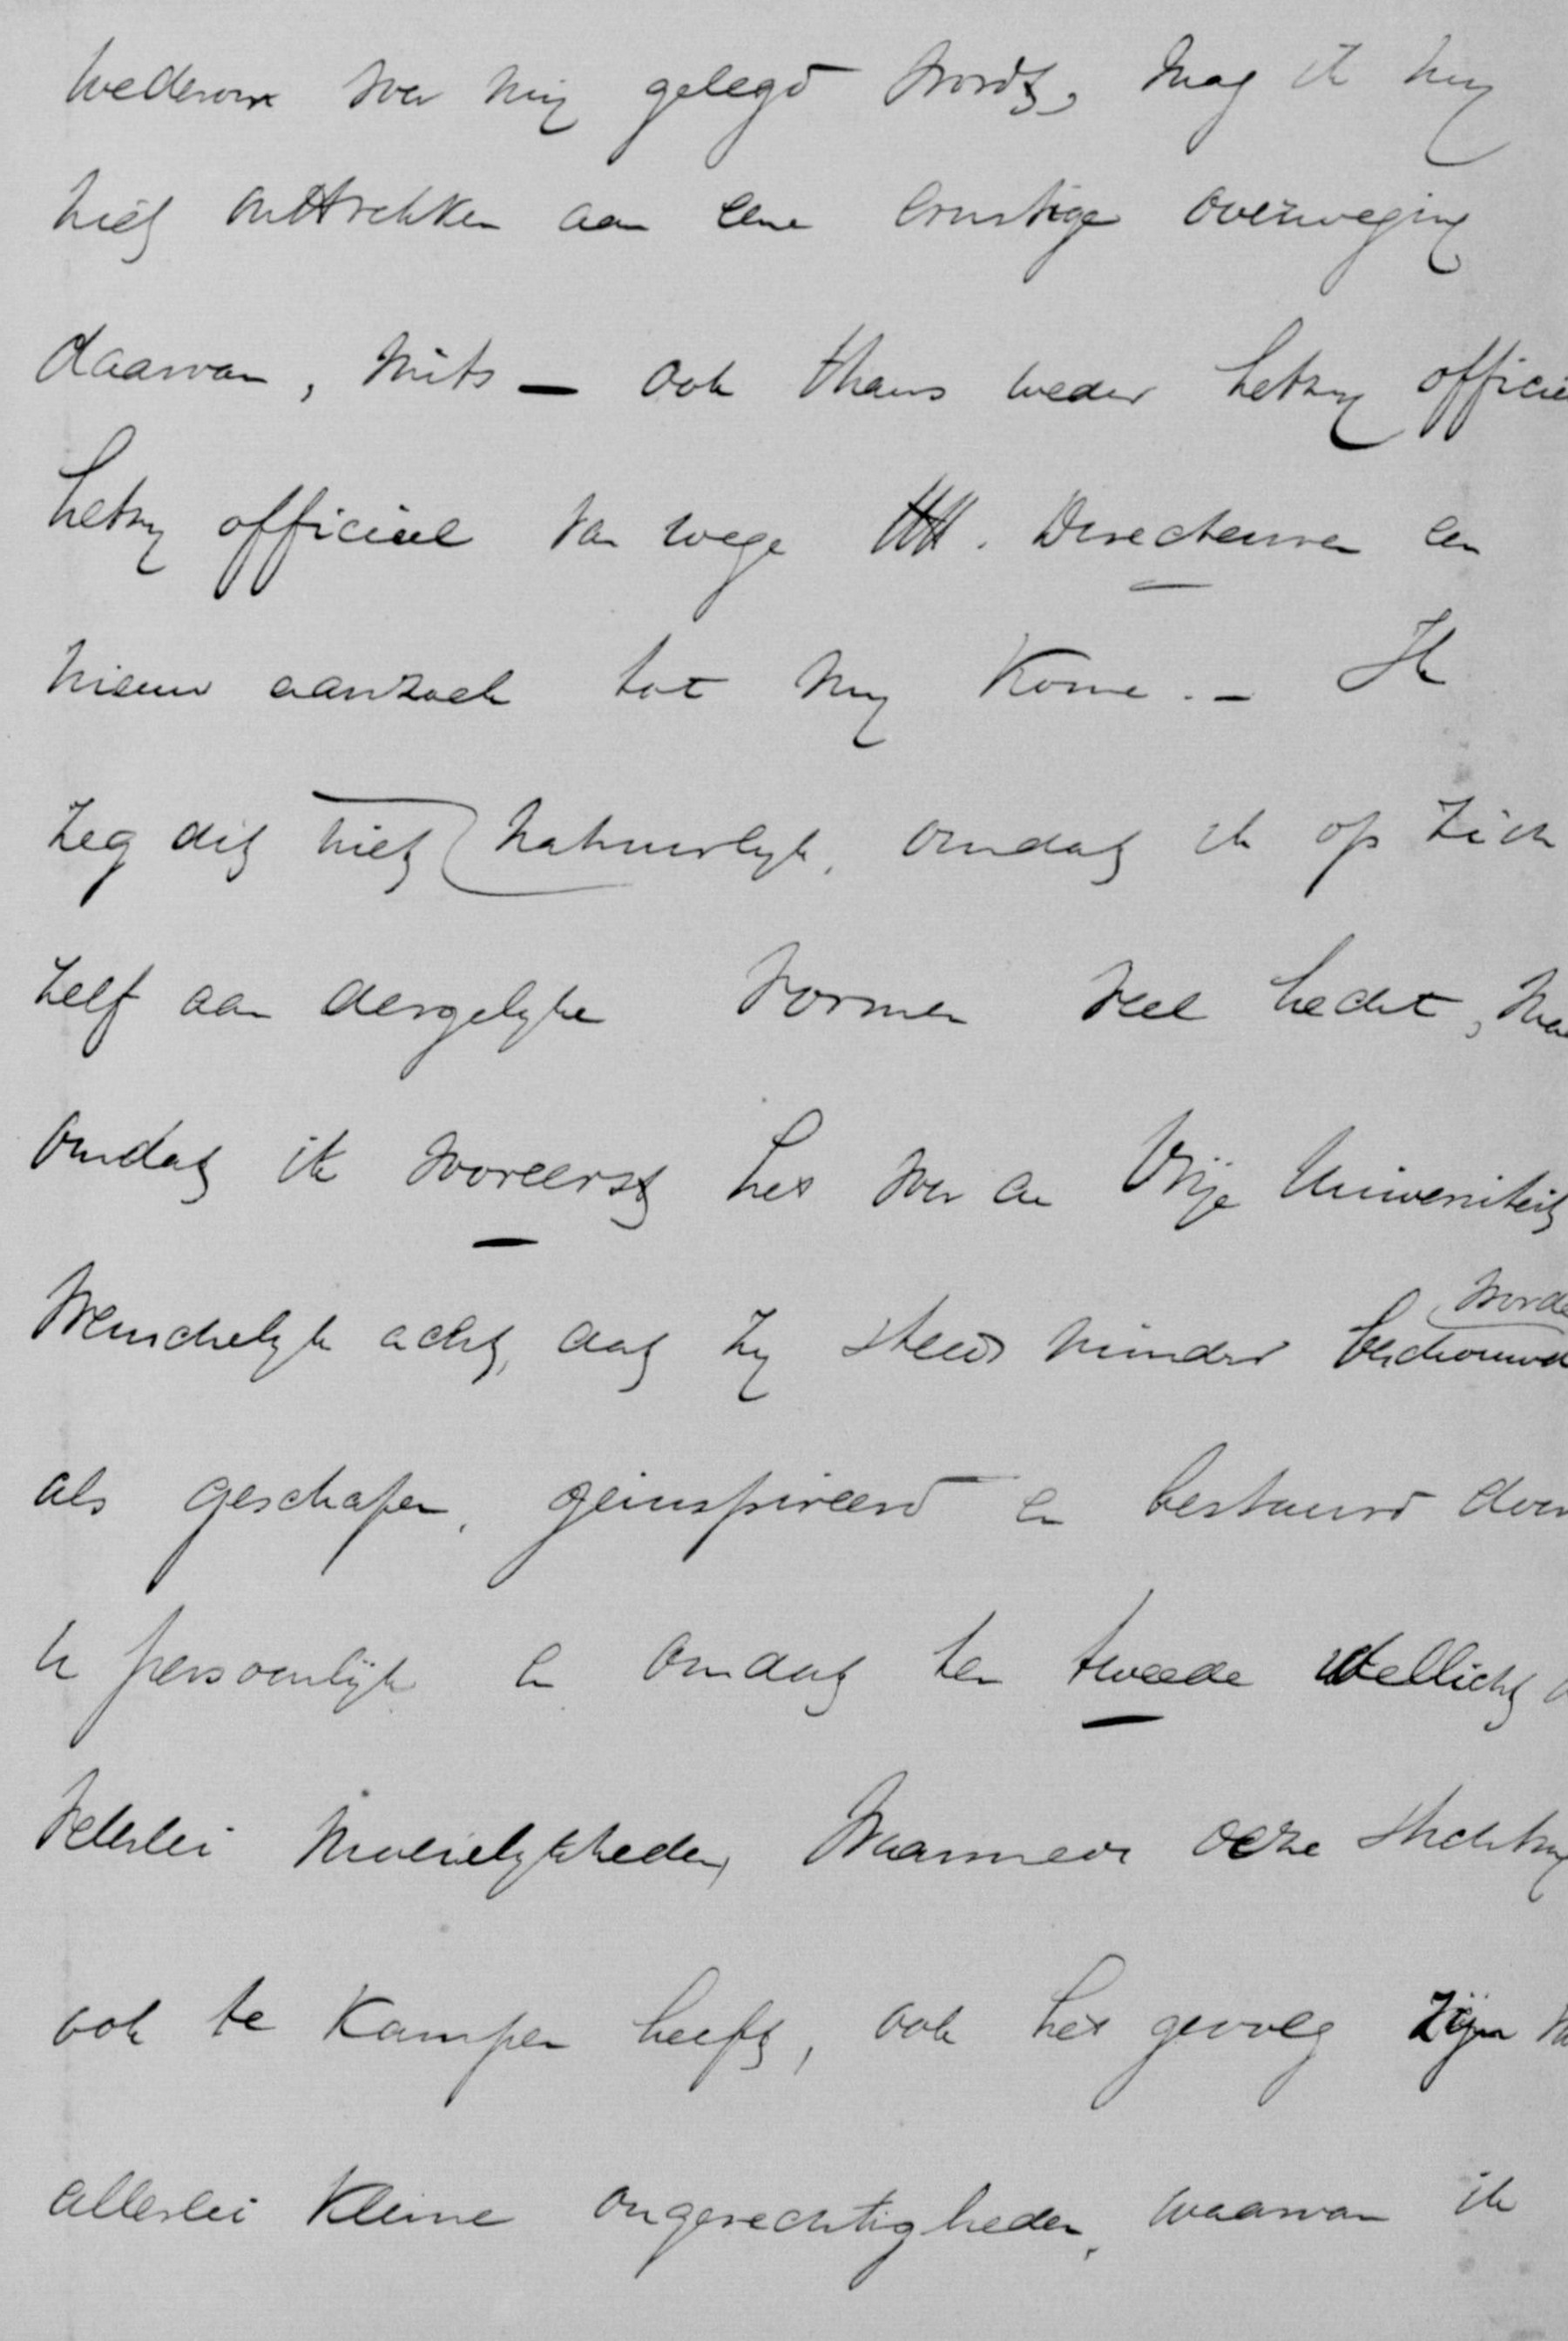 wederom voor mij gelegd wordt, mag ik my
niet onttrekken aan eene ernstige overweging
daarvan, mits — ook thans weder hetzy officie
hetzy officieel van wege HH. Directeuren een
nieuw aanzoek tot my kome. — Ik
zeg dit niet natuurlyk, omdat ik op zich
zelf aan dergelyke vormen veel hecht, maa
omdat ik vooreerst het voor de Vrije Universiteit
wenschelyk acht, dat zy steeds minder beschouwd worde
als geschapen, geinspireerd en bestuurd door
U persoonlijk en omdat ten tweede wellicht
velerlei moeielykheden, waarmede deze stichting
ook te kampen heeft, ook het gevolg zijn
allerlei kleine ongerechtigheden, waarvan ik